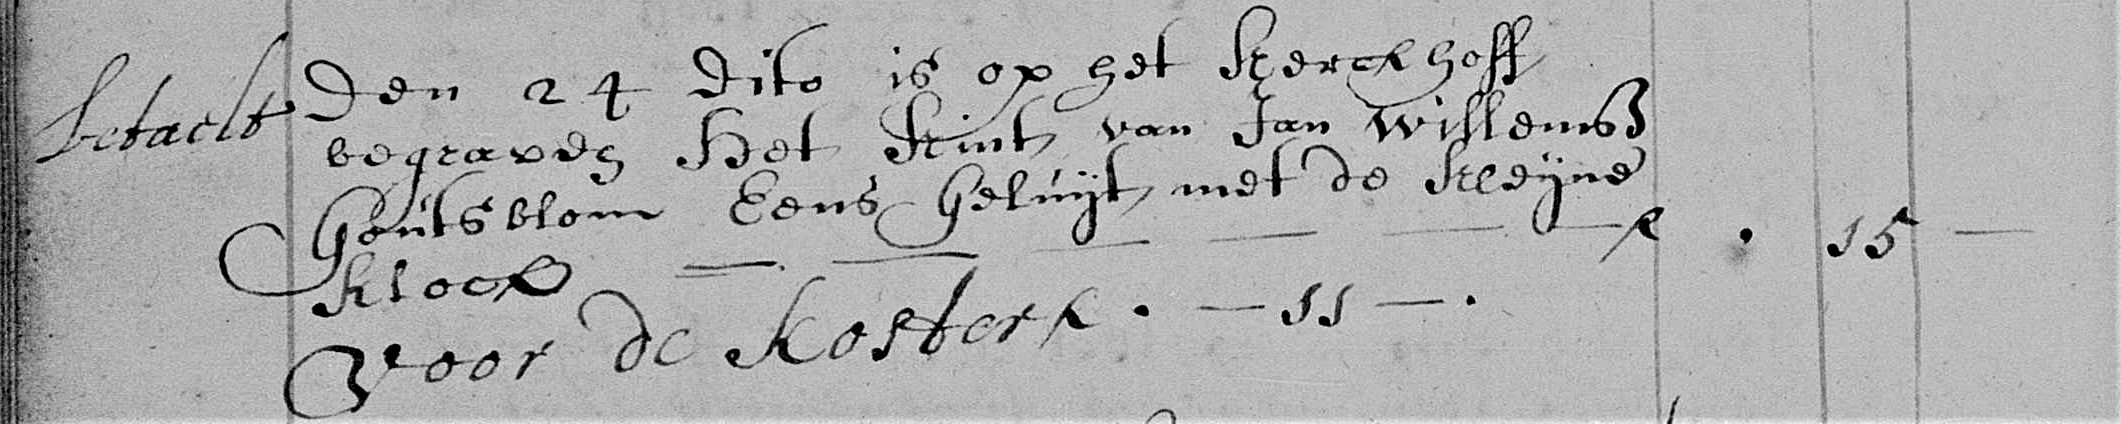 betaelt
den 24 dito is op het Kerckhoff
begraven Het Kint van Jan Willemsz
Goutsblom Eens Geluijt met de Kleijne
Klock — — — — — — ƒ . 15 —
Voor de Koster ƒ . — 11 — .